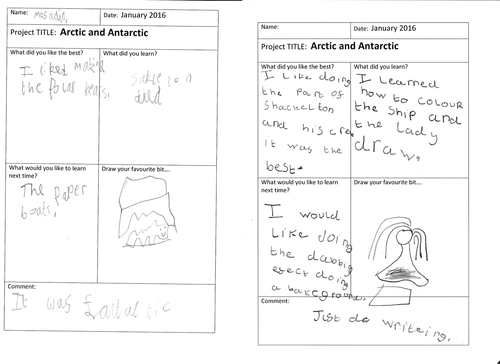 Name:
Date: January 2016
Project TITLE: Arctic and Antarctic
What did you like the best?
I liked making
the polar bears.
What did you learn?
died
What would you like to learn
next time?
The paper
boats.
Draw your favourite bit....
Comment:
It was
Name:
Date: January 2016
Project TITLE: Arctic and Antarctic
What did you like the best?
I like doing
the part of
Shackelton
and his crew
it was the
best.
What did you learn?
I Learned
how to colour
the ship and
the lady
draw.
What would you like to learn
next time?
I would
Like doing
the dabbing
efect doing
a bakeground.
Draw your favourite bit....
Comment:
Just do writeing.